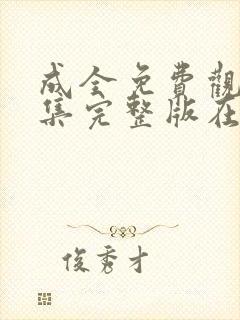 成全免費觀
集完整版在
俊秀才